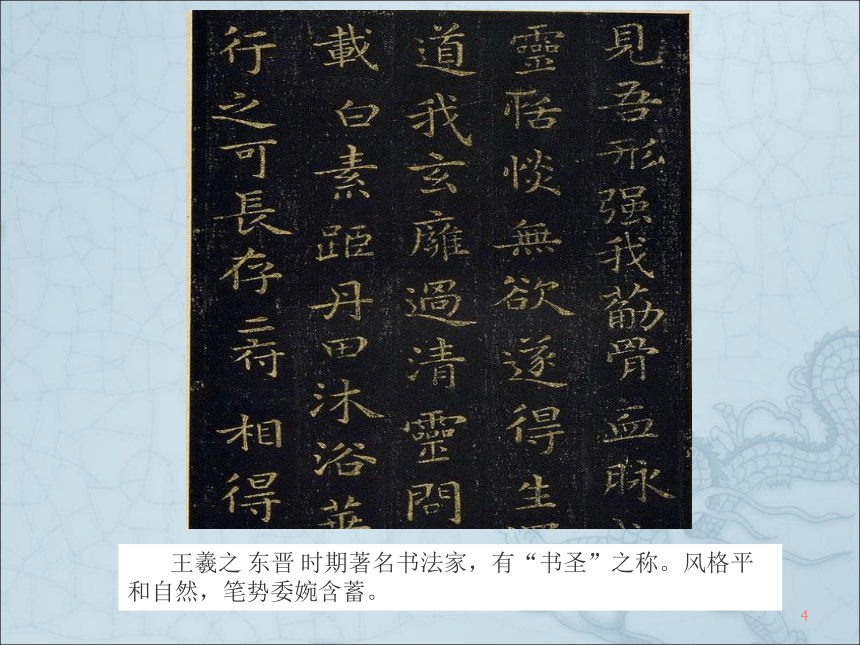 見吾形强我筋骨血脉
靈恬惔無欲遂得生
道我玄廱過清靈問
載白素距丹田沐浴華
行之可長存二府相得
王羲之 东晋 时期著名书法家，有“书圣”之称。风格平
和自然，笔势委婉含蓄。
4